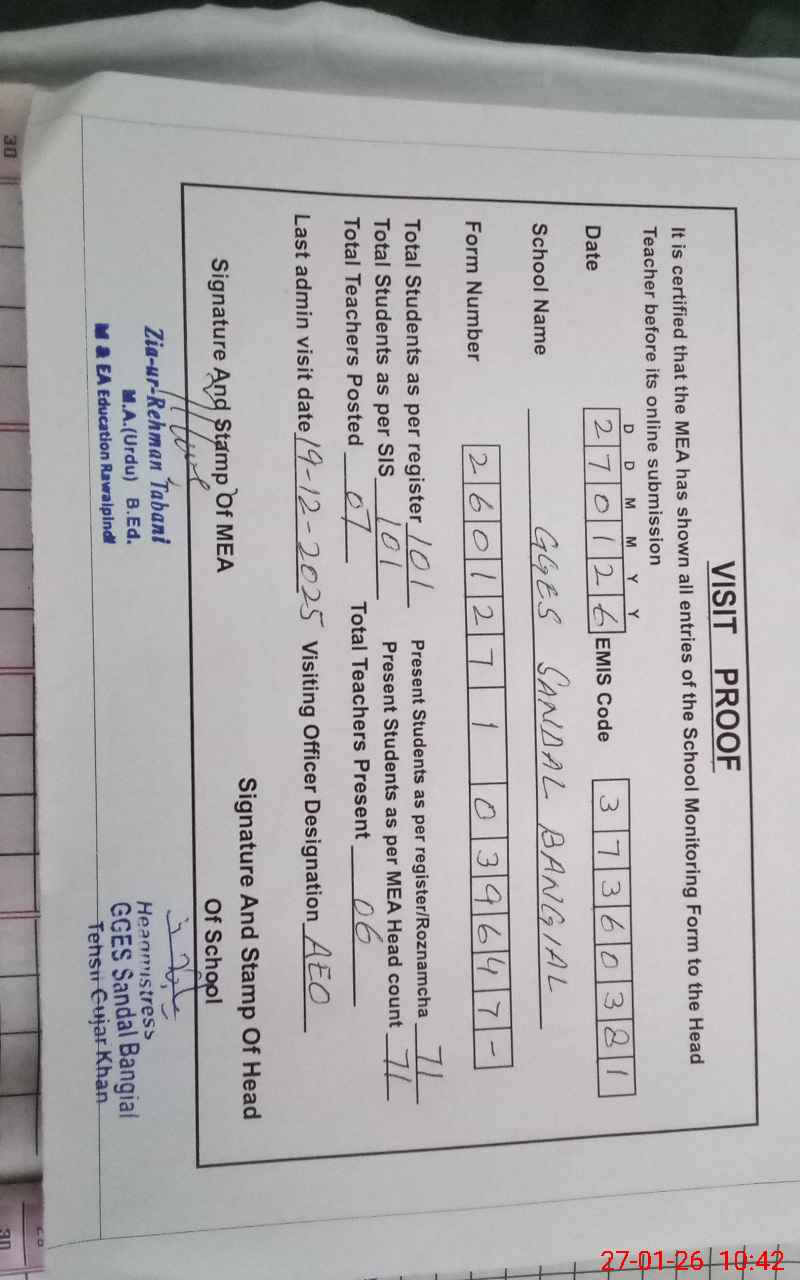 VISIT PROOF
It is certified that the MEA has shown all entries of the School Monitoring Form to the Head
Teacher before its online submission
D D M M Y Y
Date 2 7 0 1 2 6 EMIS Code 3 7 3 6 0 3 2 1
School Name GGES SANDAL BANGIAL
Form Number 2 6 0 1 2 7 1 0 3 9 6 4 7 -
Total Students as per register 101 Present Students as per register/Roznamcha 71
Total Students as per SIS 101 Present Students as per MEA Head count 71
Total Teachers Posted 07 Total Teachers Present 06
Last admin visit date 19-12-2025 Visiting Officer Designation AEO
Signature And Stamp Of MEA
Signature And Stamp Of Head
Of School
Zia-ur-Rehman Tabani
M.A.(Urdu) B.Ed.
M & EA Education Rawalpindi
Headmistress
GGES Sandal Bangial
Tehsil Gujar Khan
30
30
27-01-26 10:42